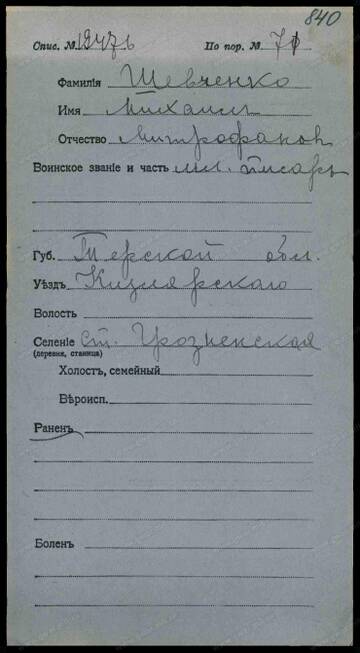 840
Спис. № 12476 По пор. № 71
Фамилія Шевченко
Имя Михаилъ
Отчество Митрофанов
Воинское званіе и часть мл. писарь
Губ. Терской обл.
Уѣздъ Кизлярскаго
Волость
Селеніе Ст. Грозненская
(деревня, станица)
Холост, семейный
Вѣроисп.
Раненъ
Боленъ